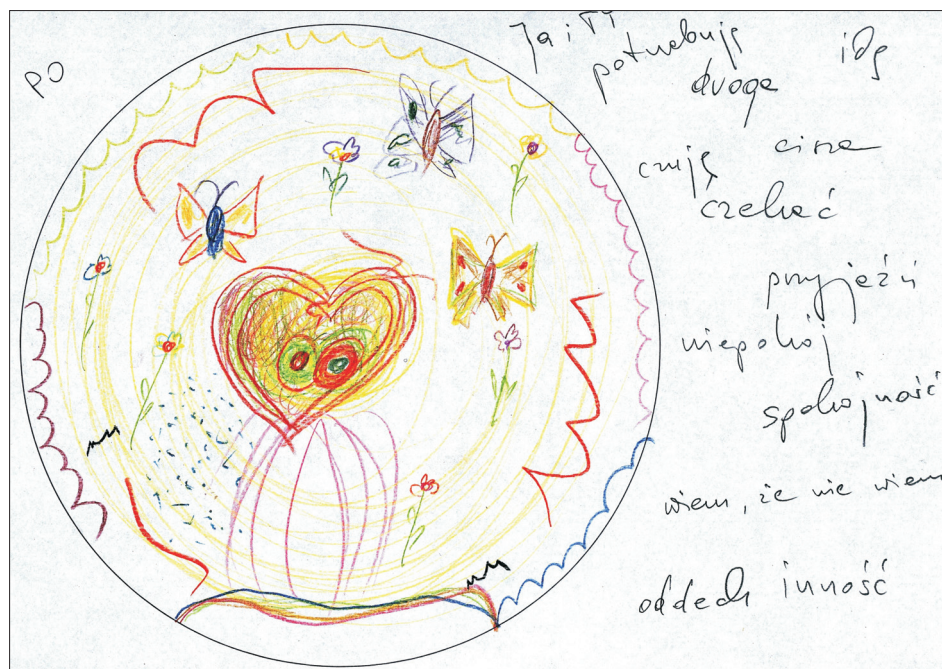 PO
Ja i TY
potrzebuję idę
droga
czuję cisza
czekać
przyjaźń
niepokój
spokojność
wiem, że nie wiem
oddech inność